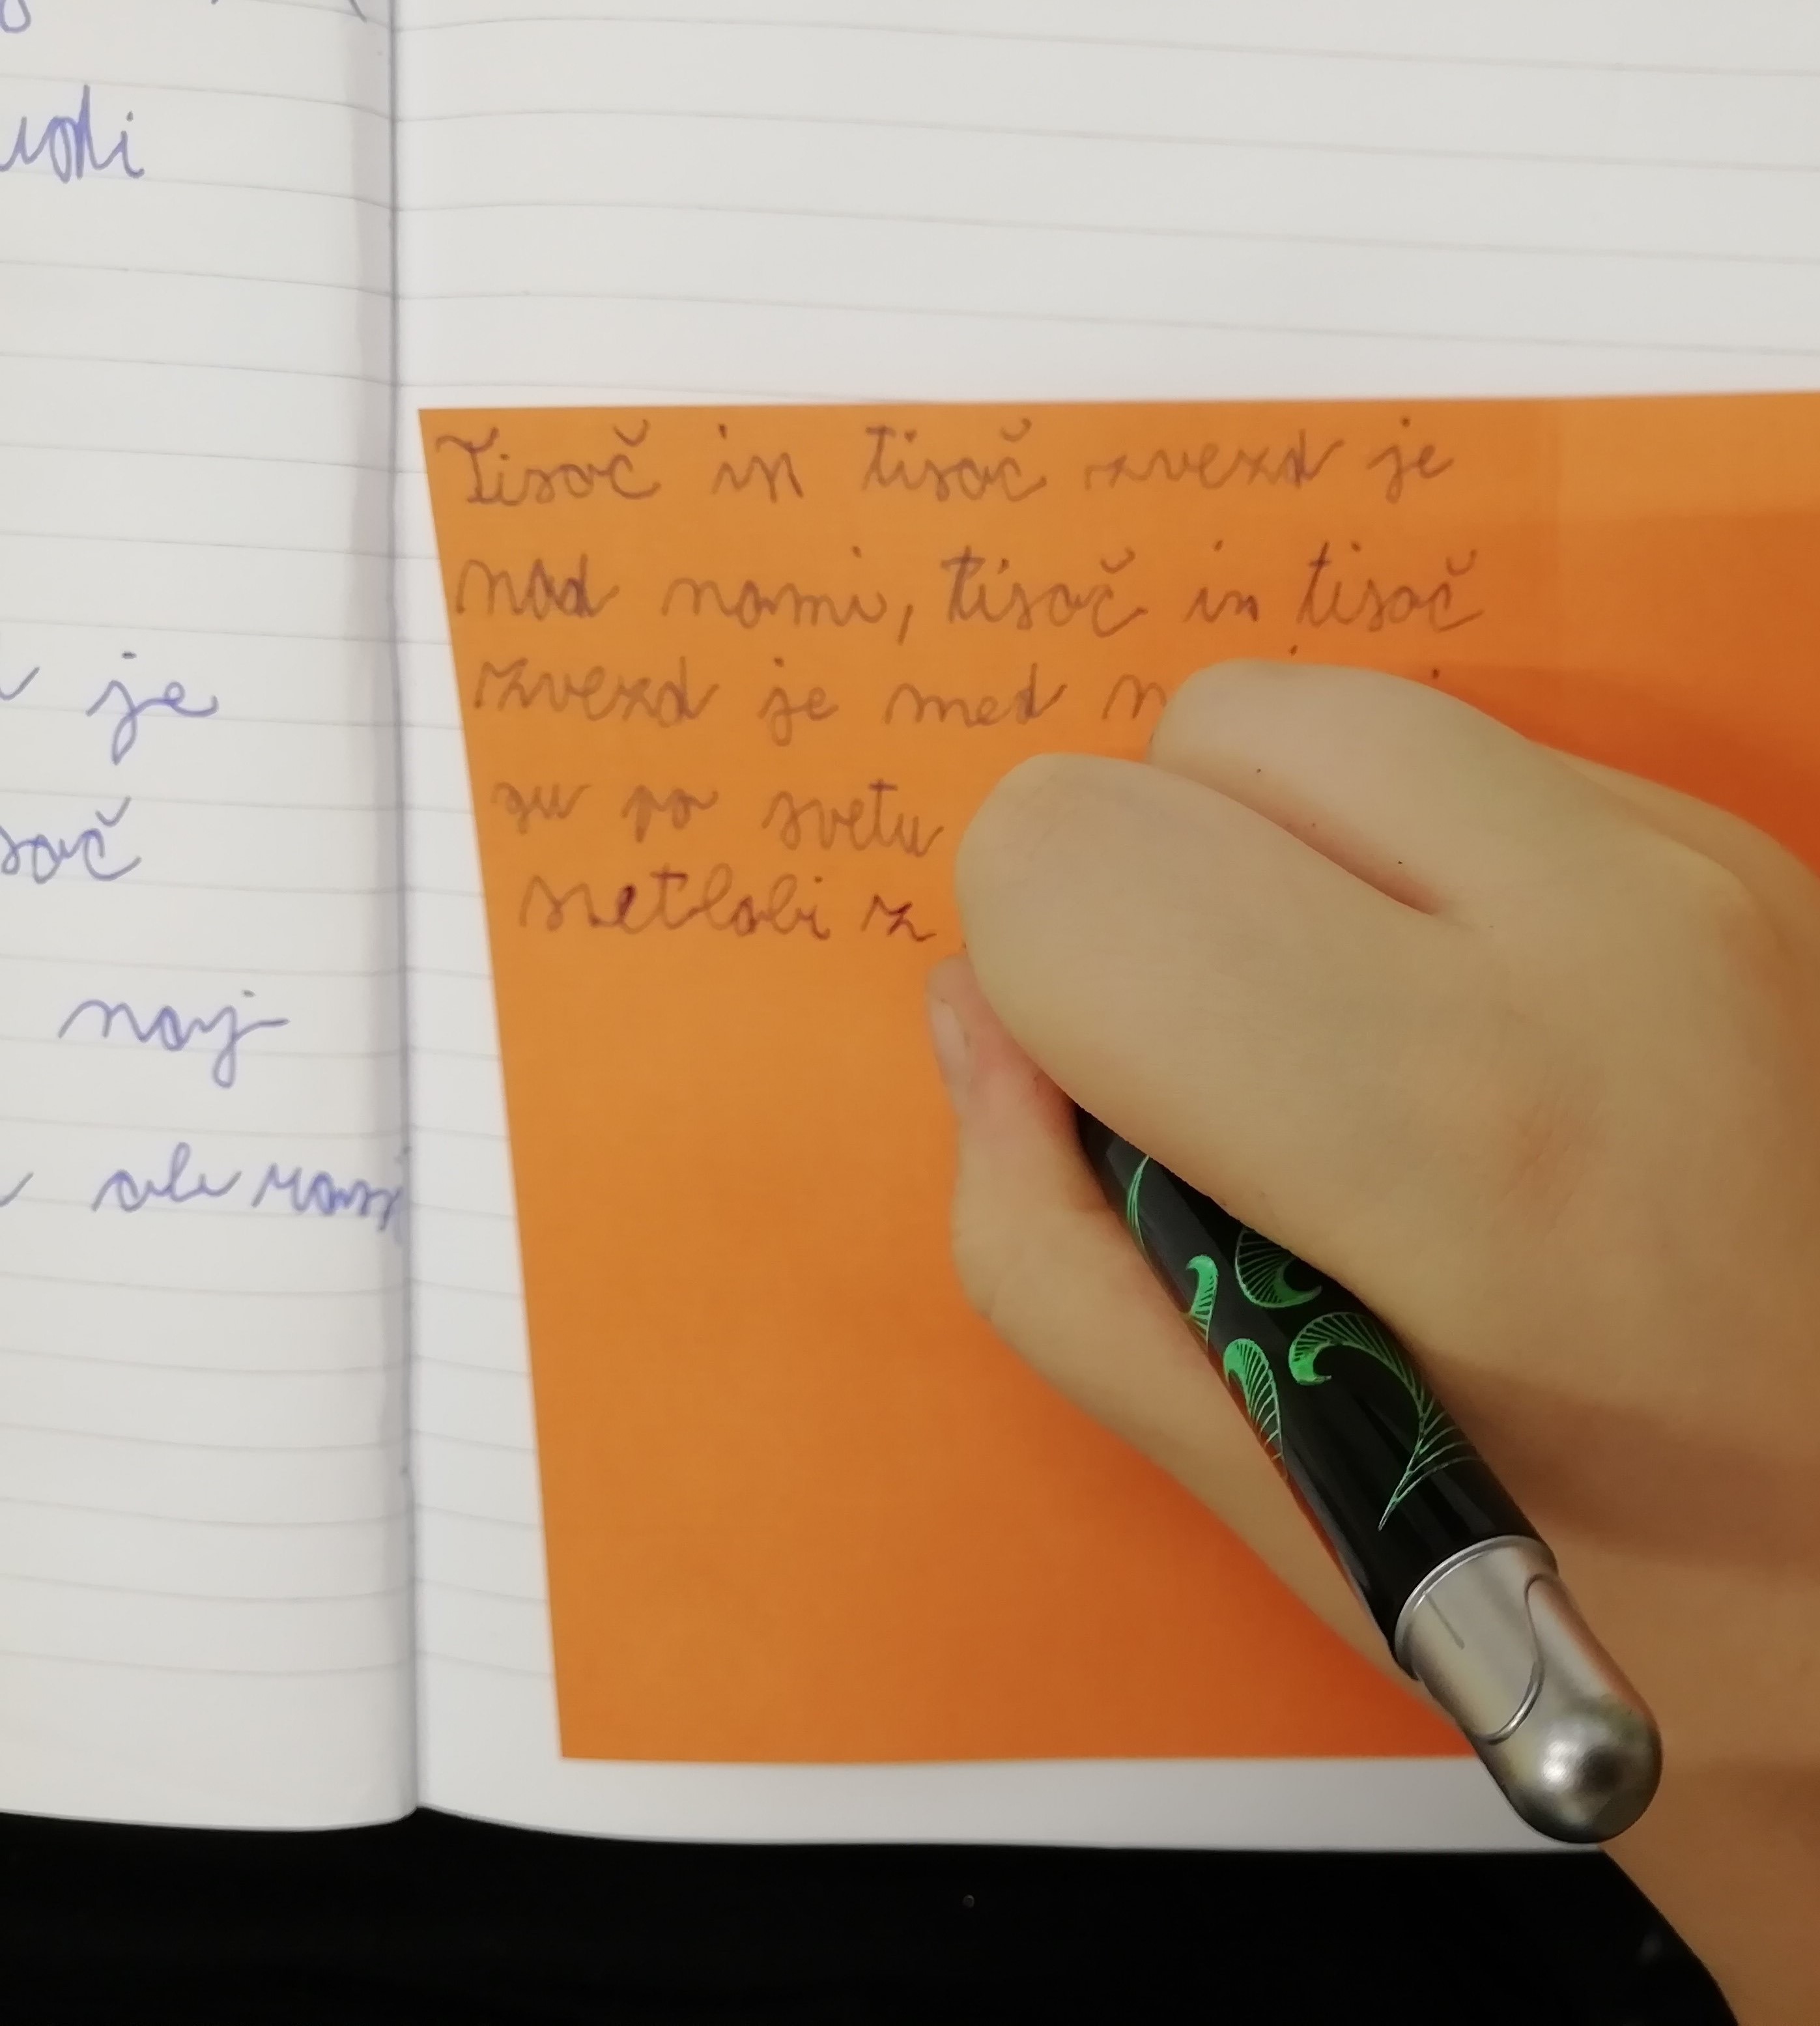 je
noj
ale
Tisoč in tisoč zvezd je
nad nami, tisoč in tisoč
zvezd je med
su po svetu
svetlobi z